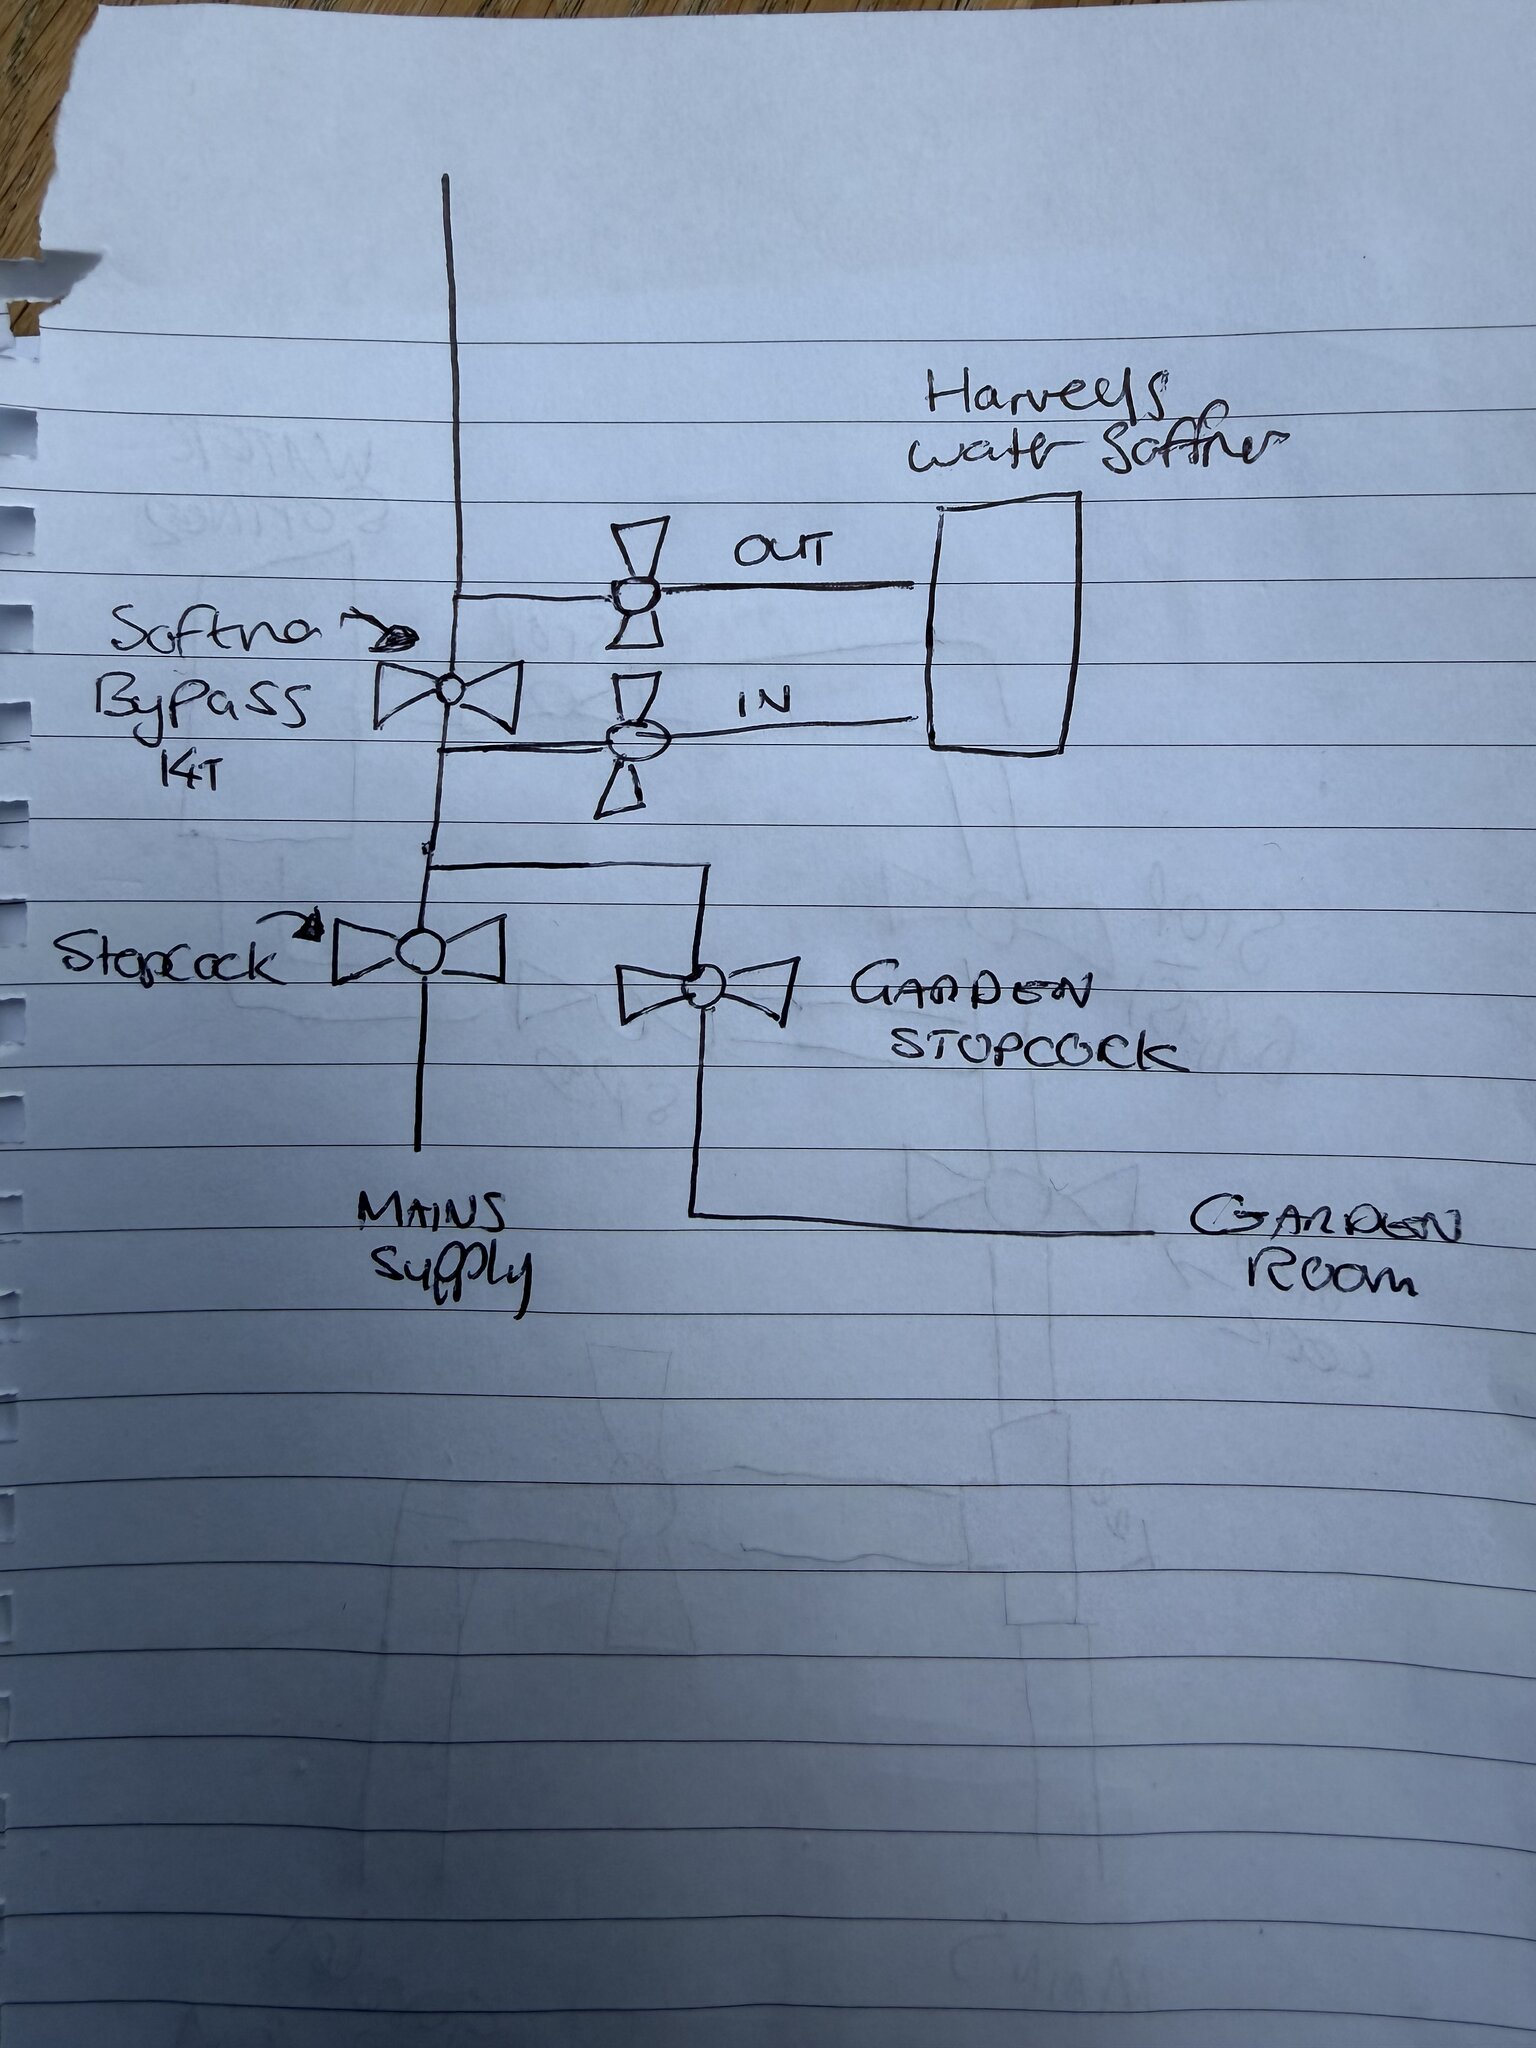 Harveys
water Softner
OUT
Softna
Bypass
KIT
IN
Stopcock
GARDEN
STOPCOCK
MAINS
Supply
GARDEN
ROOM